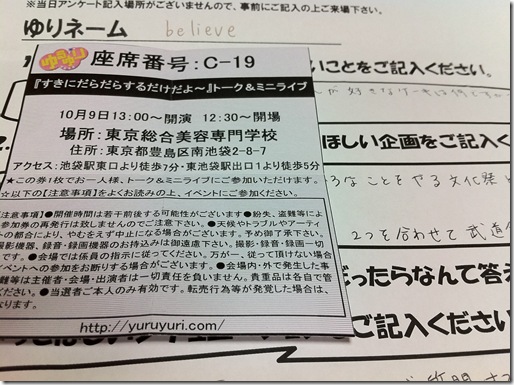 ※当日アンケート記入場所がございませんので、事前にご記入の上ご来場下さい。
ゆりネーム believe
いことをご記入ください。
ゆるゆり
座席番号：C-19
『すきにだらだらするだけだよ～』トーク＆ミニライブ
10月9日13:00～開演 12:30～開場
場所：東京総合美容専門学校
住所：東京都豊島区南池袋2-8-7
アクセス：池袋駅東口より徒歩7分・東池袋駅出口1より徒歩5分
★この券1枚でお一人様、トーク&ミニライブにご参加いただけます。
☆以下の【注意事項】をよくお読みの上、イベントにご参加ください。
注意事項】●開催時間は若干前後する可能性がございます●紛失、盗難等によ
の再発行は致しませんのでご注意下さい。●天候やトラブルやアーティ
の都合により、やむをえず中止になる場合がございます。予め御了承下さい。
撮影機器、録音・録画機器のお持込みは御遠慮下さい。撮影・録音・録画一切
です。●会場では係員の指示に従ってください。万が一、従って頂けない場合
イベントへの参加をお断りする場合がございます。●会場内・外で発生した事
難等は主催者・会場・出演者は一切責任を負いません。貴重品は各自で管
ください。●当選者ご本人のみ有効です。転売行為等が発覚した場合は、
なります。
http://yuruyuri.com/
ほしい企画をご記入くだ
なことをやる文化祭と
2つを合わせて武道
だったらなんて答え
ご記入ください